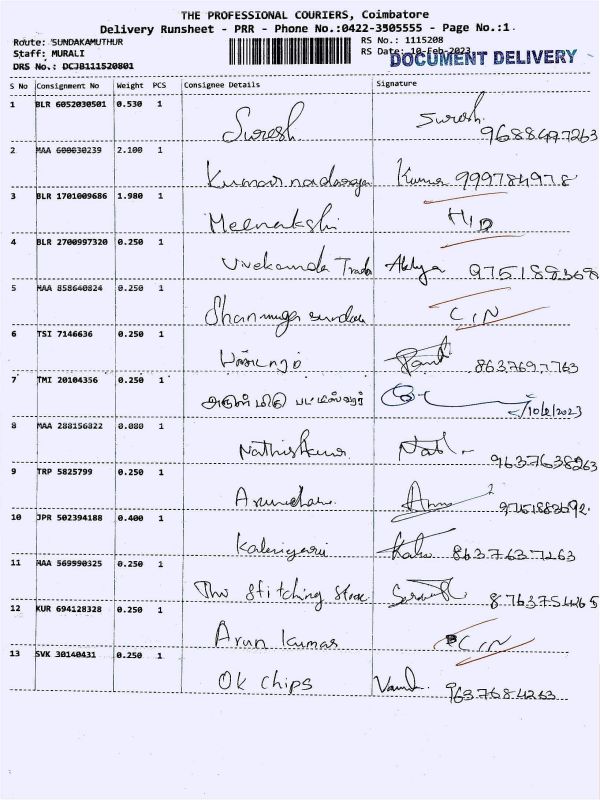 THE PROFESSIONAL COURIERS, Coimbatore
Delivery Runsheet - PRR - Phone No.:0422-3505555 - Page No.:1
Route: SUNDAKAMUTHUR
Staff: MURALI
DRS No.: DCJB111520801
RS No.: 1115208
RS Date: 10-Feb-2023
DOCUMENT DELIVERY
S No Consignment No Weight PCS Consignee Details Signature
1 BLR 6052030501 0.530 1
Suresh Suresh. 9688497263
2 MAA 600030239 2.100 1
Kumar nadaraja Kumar 999784978
3 BLR 1701009686 1.980 1
Meenakshi H/D
4 BLR 2700997320 0.250 1
Vivekanda Trada 9751883689
5 MAA 858640824 0.250 1
Shanmuga sundar C/N
6 TSI 7146636 0.250 1
8637697763
7 TMI 20104356 0.250 1
அருள்மிகு பட்டீஸ்வரர்
10/2/2023
8 MAA 288156822 0.080 1
Nathishkumar 9637638263
9 TRP 5825799 0.250 1
10 JPR 502394188 0.400 1
8637637263
11 MAA 569990325 0.250 1
The Stitching Store 8763754265
12 KUR 694128328 0.250 1
Arun Kumar C/N
13 SVK 30140431 0.250 1
Ok chips 9637684263